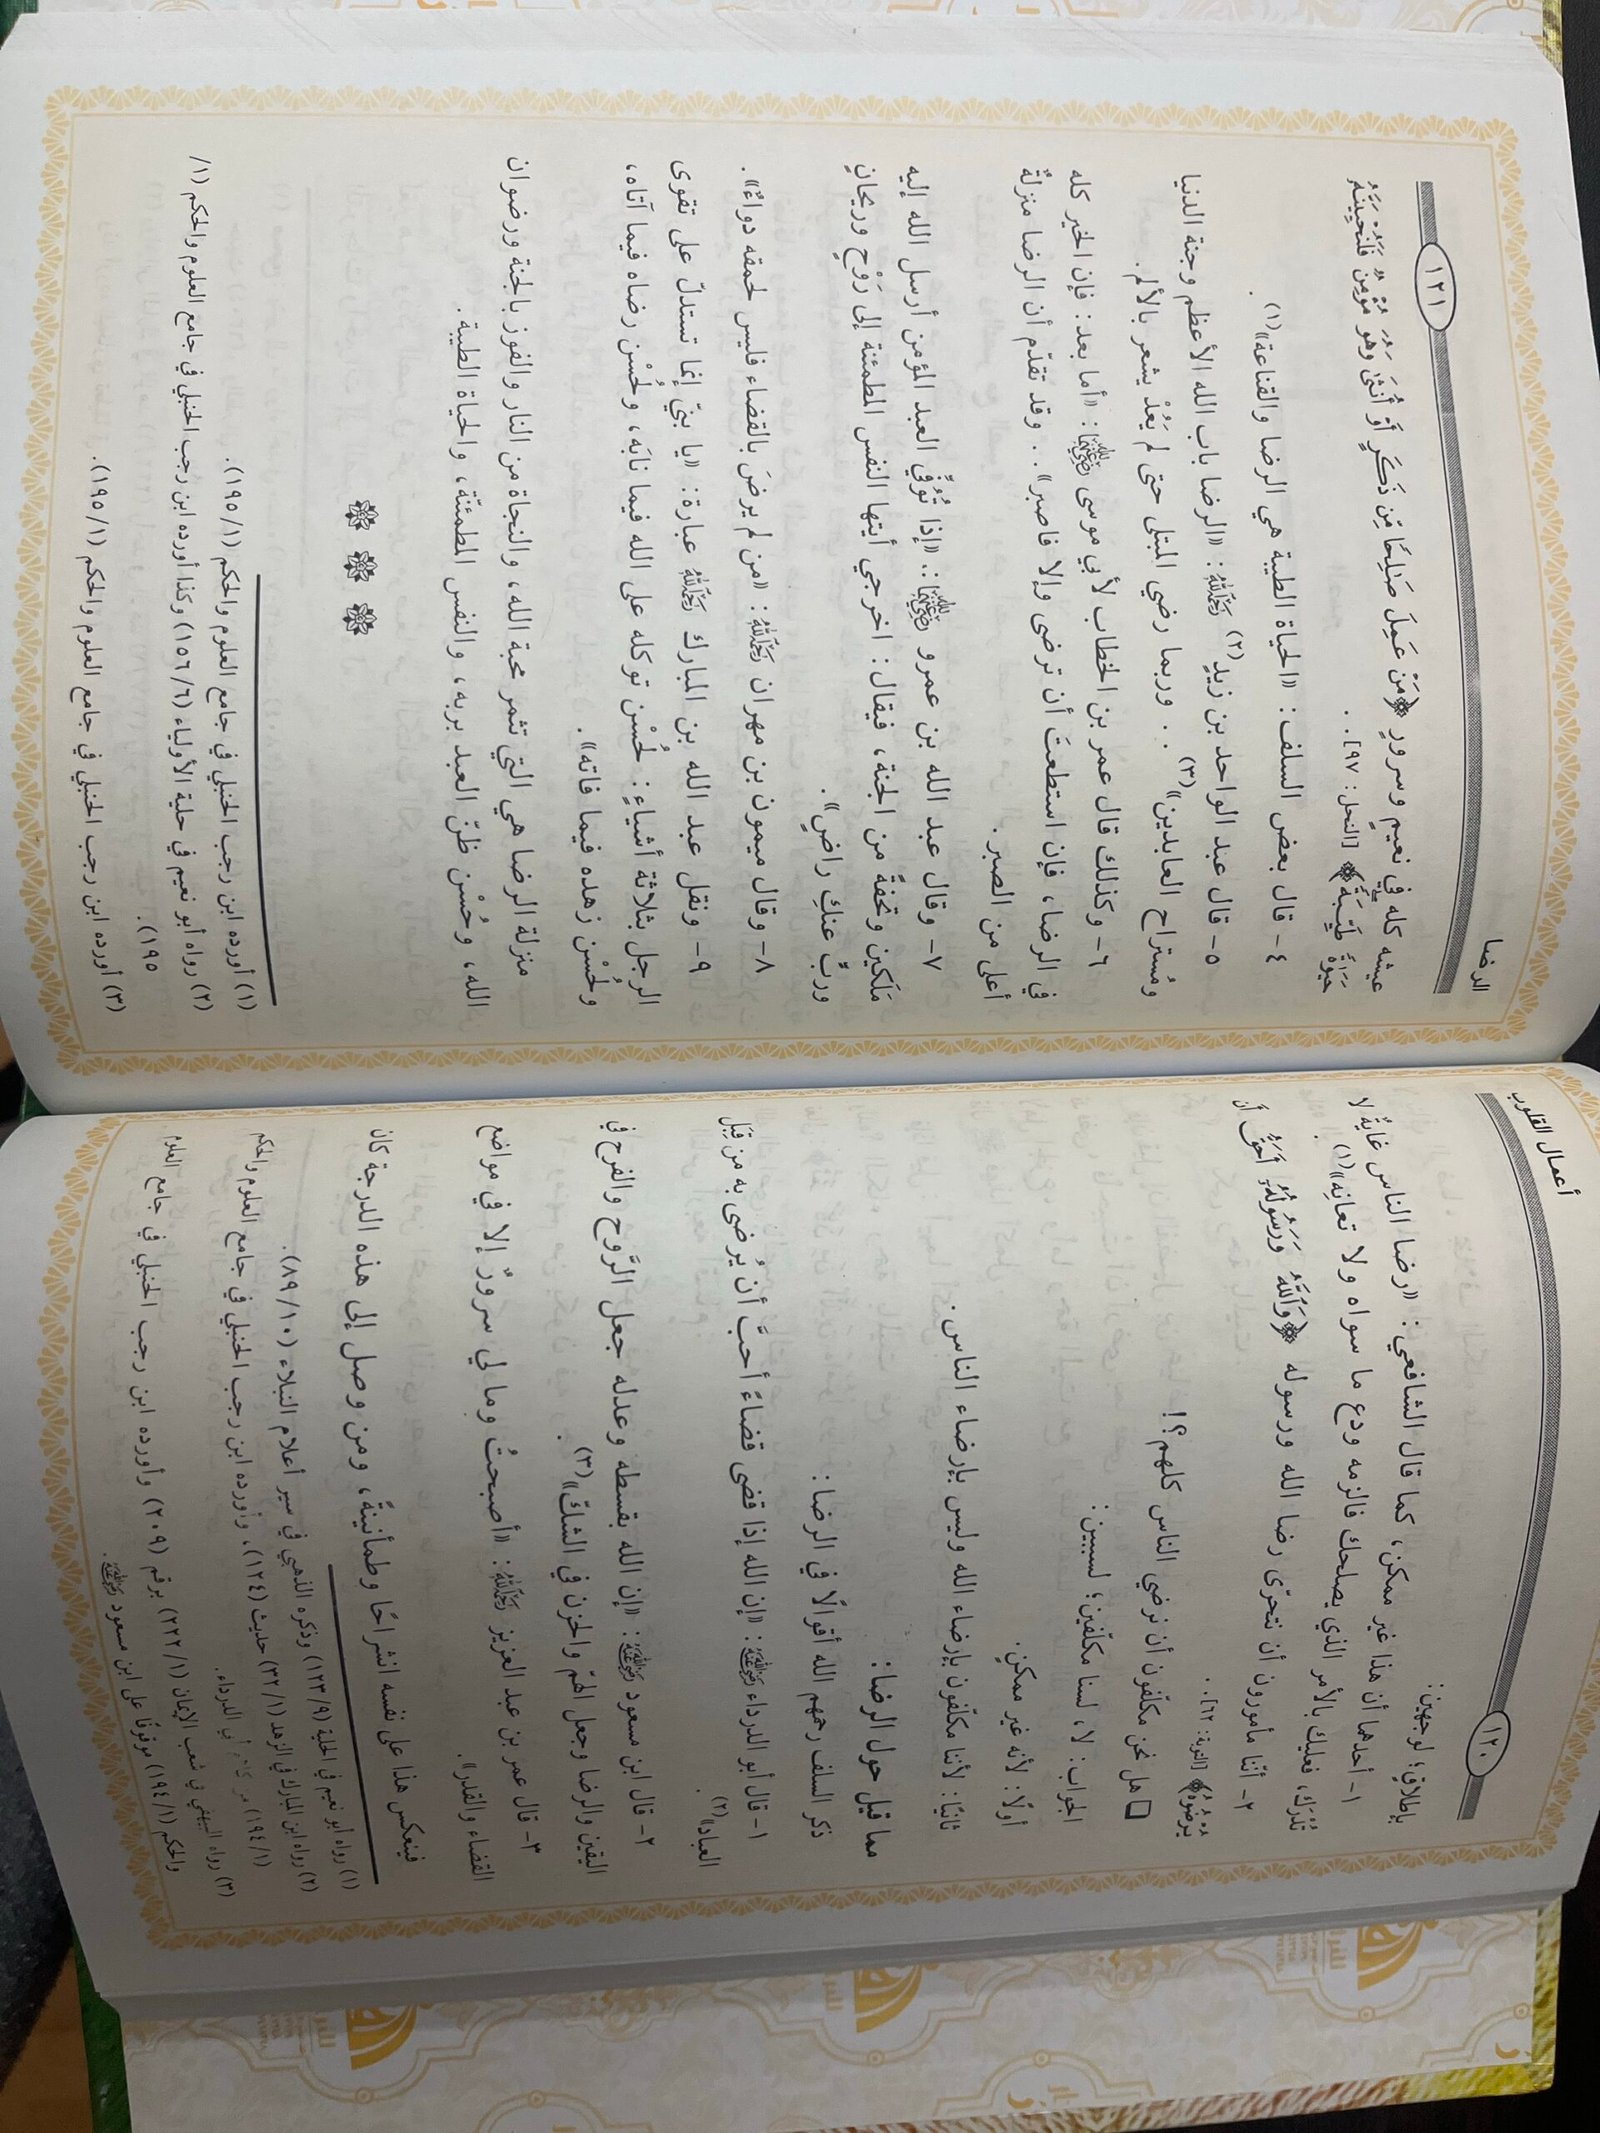 أعمال القلوب
١٢٠
بإطلاقٍ؛ لوجهين:
١- أحدهما أن هذا غير ممكن، كما قال الشافعي: «رضا الناس غايةٌ لا
تُدْرَك، فعليك بالأمر الذي يصلحك فالزمه ودع ما سواه ولا تعانِه»(١).
٢- أنّنا مأمورون أن نتحرّى رضا الله ورسوله ﴿وَاللَّهُ وَرَسُولُهُ أَحَقُّ أَن
يُرْضُوهُ﴾ [التوبة: ٦٢]..
□ هل نحن مكلّفون أن نرضي الناس كلهم؟!
الجواب: لا، لسنا مكلّفين؛ لسببين:
أولًا: لأنه غير ممكنٍ.
ثانيًا: لأننا مكلّفون بإرضاء الله وليس بإرضاء الناس.
مما قيل حول الرضا:
ذكر السلف رحمهم الله أقوالًا في الرضا:
١- قال أبو الدرداء رضي الله عنه: «إن الله إذا قضى قضاءً أحبَّ أن يُرضى به من قِبَل
العباد»(٢).
٢- قال ابن مسعود رضي الله عنه: «إن الله بقسطه وعدله جعل الرَّوح والفرح في
اليقين والرضا وجعل الهمّ والحزن في الشكّ»(٣).
٣- قال عمر بن عبد العزيز رحمه الله: «أصبحتُ وما لي سرورٌ إلا في مواضع
القضاء والقدر».
فينعكس هذا على نفسه انشراحًا وطمأنينةً، ومن وصل إلى هذه الدرجة كان
(١) رواه أبو نعيم في الحلية (٩/١٢٣) وذكره الذهبي في سير أعلام النبلاء (١٠/٨٩).
(٢) رواه ابن المبارك في الزهد (١/٣٢) حديث (١٢٤)، وأورده ابن رجب الحنبلي في جامع العلوم والحكم
(١/١٩٤) من كلام أبي الدرداء.
(٣) رواه البيهقي في شعب الإيمان (١/٢٢٢) برقم (٢٠٩) وأورده ابن رجب الحنبلي في جامع العلوم
والحكم (١/١٩٤) موقوفًا على ابن مسعود رضي الله عنه.
الرضا
١٢١
عيشه كله في نعيمٍ وسرورٍ ﴿مَنْ عَمِلَ صَالِحًا مِّن ذَكَرٍ أَوْ أُنثَىٰ وَهُوَ مُؤْمِنٌ فَلَنُحْيِيَنَّهُ
حَيَاةً طَيِّبَةً﴾ [النحل: ٩٧]..
٤- قال بعض السلف: «الحياة الطيبة هي الرضا والقناعة»(١).
٥- قال عبد الواحد بن زيدٍ(٢) رحمه الله: «الرضا باب الله الأعظم وجنة الدنيا
ومُستراح العابدين»(٣).. وربما رضي المبتلى حتى لم يَعُدْ يشعر بالألم.
٦- وكذلك قال عمر بن الخطاب لأبي موسى رضي الله عنهما: «أما بعد: فإن الخير كله
في الرضا، فإن استطعتَ أن ترضى وإلا فاصبر».. وقد تقدّم أن الرضا منزلةٌ
أعلى من الصبر.
٧- وقال عبد الله بن عمرو رضي الله عنهما: «إذا تُوُفِّي العبد المؤمن أرسل الله إليه
مَلَكين وتحفةً من الجنة، فيقال: اخرجي أيتها النفس المطمئنة إلى رَوْحٍ وريحانٍ
وربٍّ عنكِ راضٍ».
٨- وقال ميمون بن مهران رحمه الله: «من لم يرضَ بالقضاء فليس لحمقه دواءٌ».
٩- ونقل عبد الله بن المبارك رحمه الله عبارة: «يا بنيّ إنما تستدلّ على تقوى
الرجل بثلاثة أشياءٍ: لحُسْن توكله على الله فيما نابَه، ولحُسْن رضاه فيما آتاه،
ولحُسْن زهده فيما فاته».
منزلة الرضا هي التي تثمر محبة الله، والنجاة من النار والفوز بالجنة ورضوان
الله، وحُسْن ظنّ العبد بربه، والنفس المطمئنّة، والحياة الطيبة.
(١) أورده ابن رجب الحنبلي في جامع العلوم والحكم (١/١٩٥).
(٢) رواه أبو نعيم في حلية الأولياء (٦/١٥٦) وكذا أورده ابن رجب الحنبلي في جامع العلوم والحكم (١/
١٩٥).
(٣) أورده ابن رجب الحنبلي في جامع العلوم والحكم (١/١٩٥).